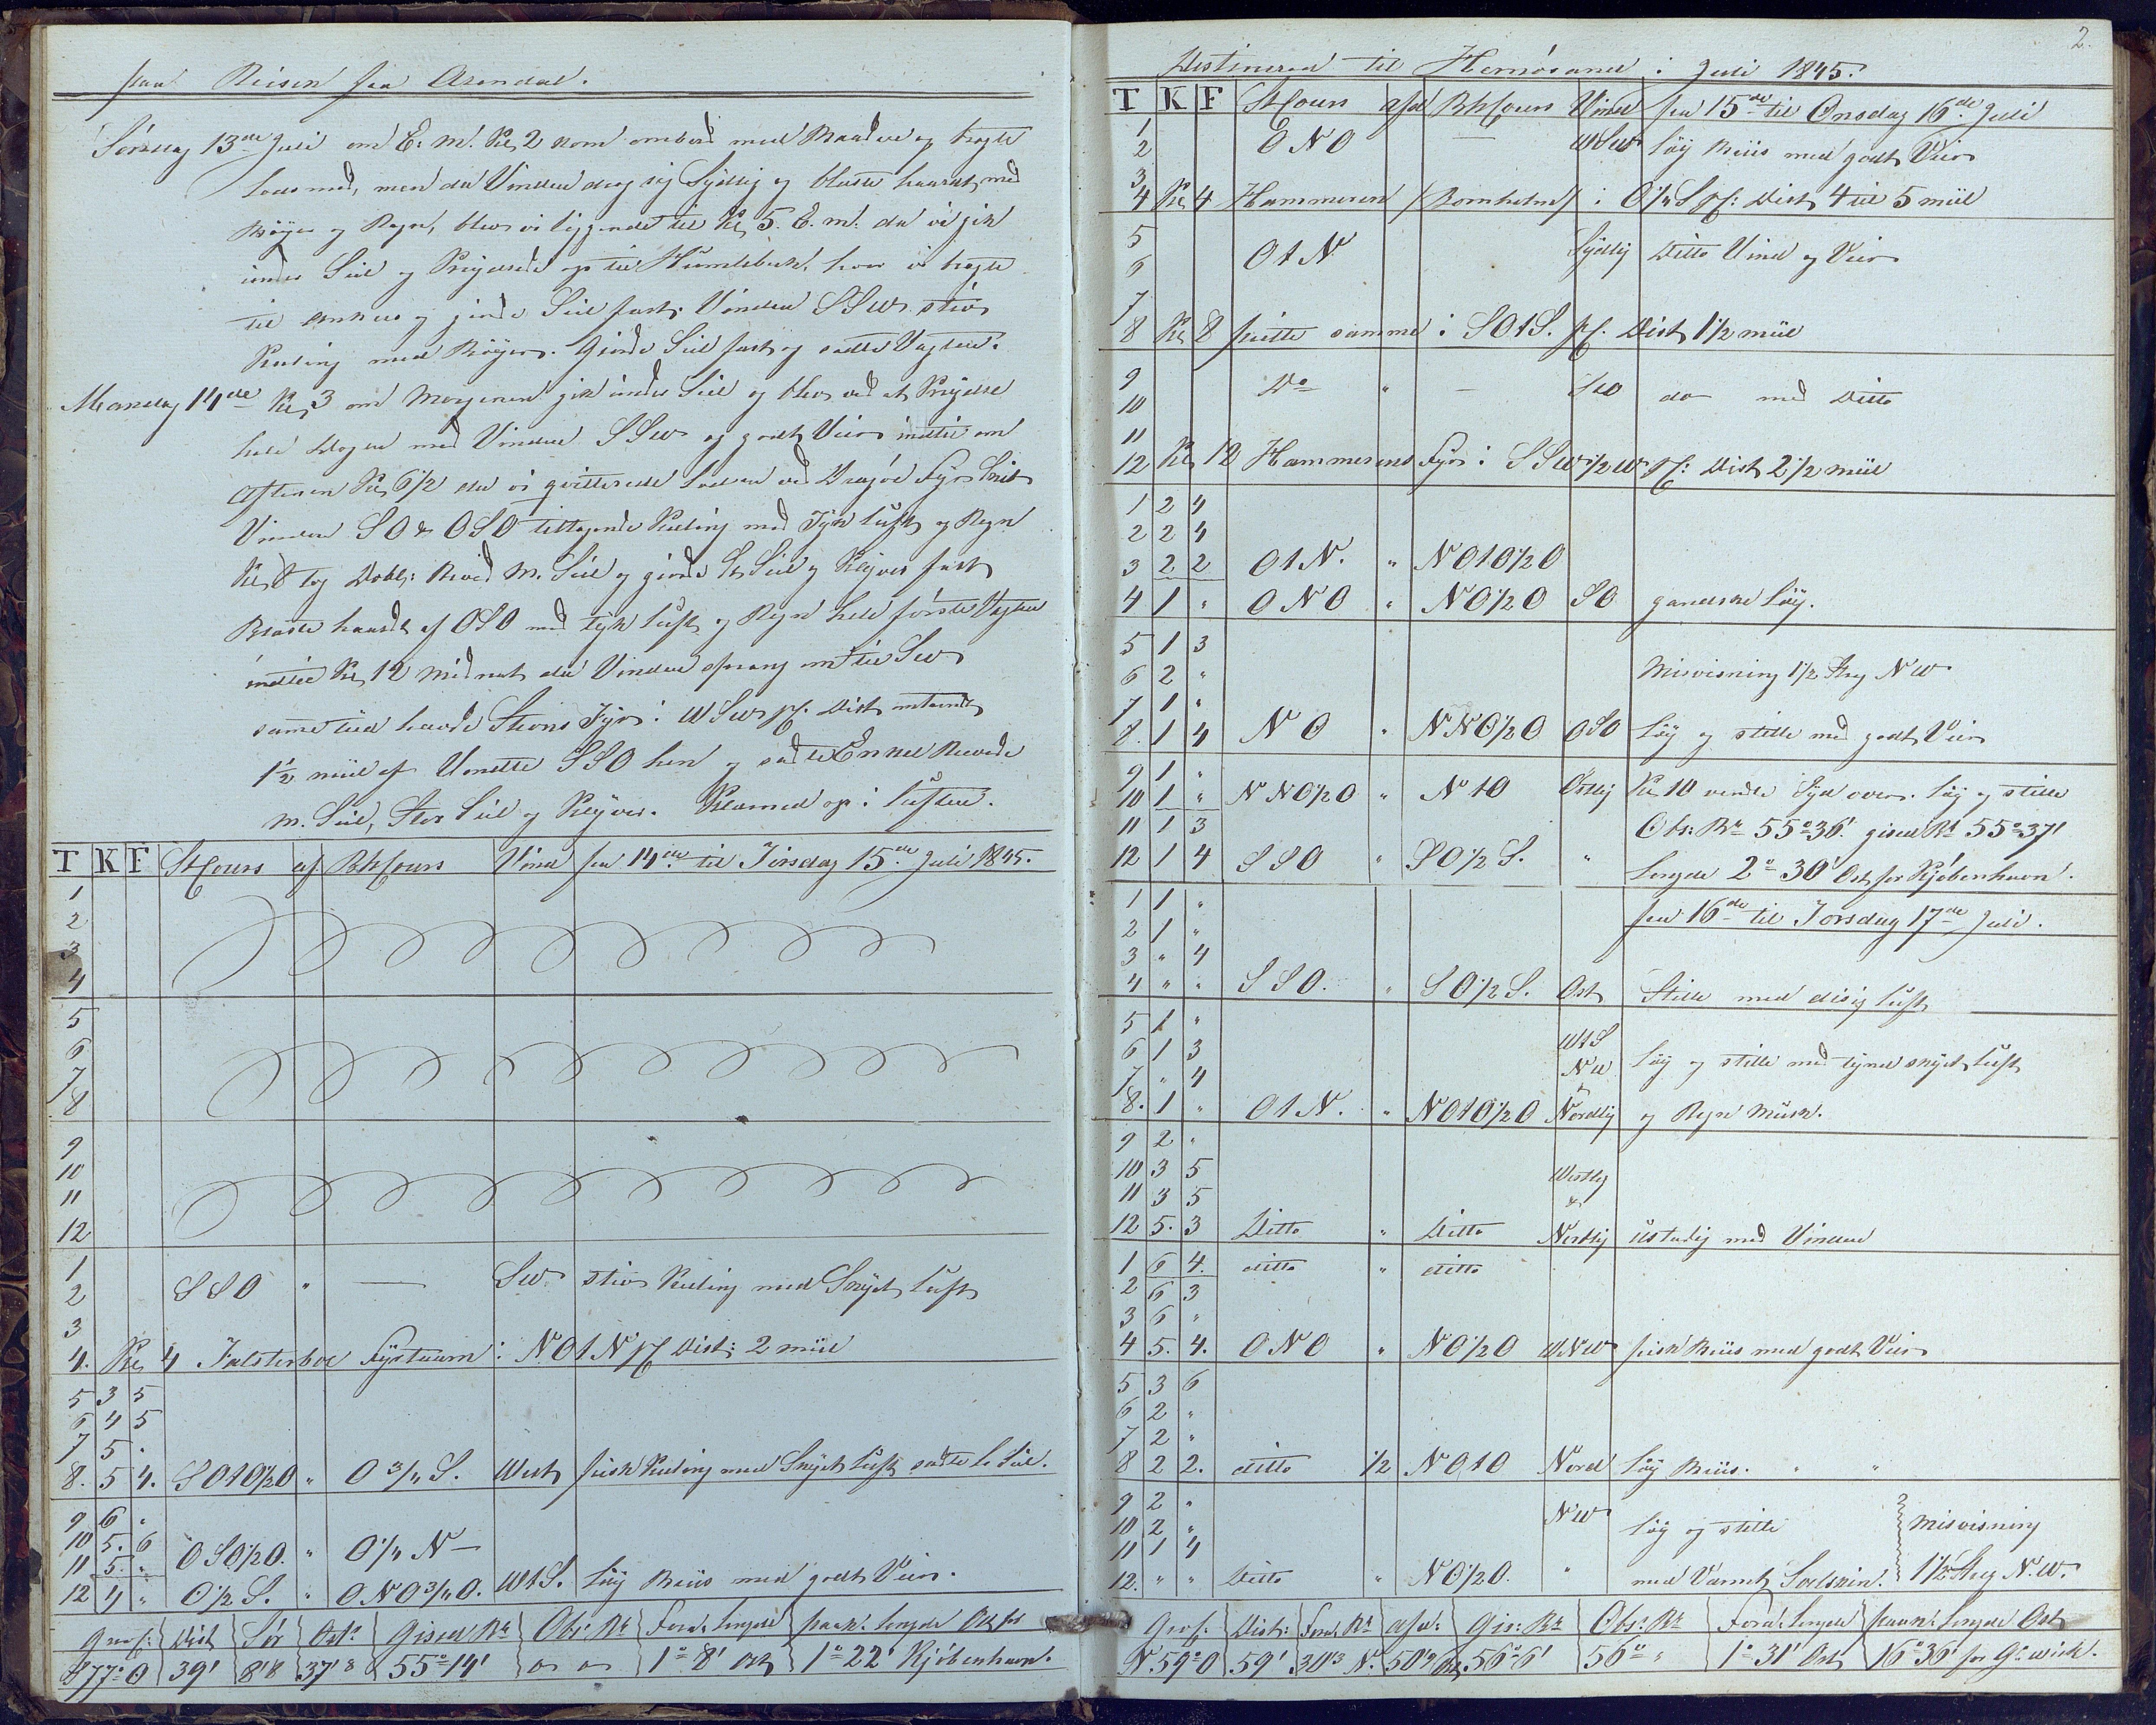 paa Reisen fra Arendal.
Søndag 13de Juli om E: M: Kl, 2 kom ombord med Baaden og bragte
Lods med, men da Vinden drog sig Sydlig og blæste haardt, med
Bøyer og Regn, blev vi liggende til Kl, 5. E. m. da vi gik
under Seil og Krydsede op til Humlebek, hvor vi bragte
til Ankers og giorde Seil fast. Vinden SSW stiv
Kuling med Bøyer. Giorde Seil fast og satte Vagten.
Mandag 14de Kl, 3 om Morgenen gik under Seil og blev ved at Krydse
hele Dagen med Vinden SSW og godt Veir indtil om
Aftenen Kl, 6 1/2 da vi qvitterede Lodsen ved Dragøe Fyr Skib
Vinden SO & OSO tiltagende Kuling med Tyk Luft og Regn
Kl, 8 tog Dobl: Reved M. Seil og giorde St. Seil og Klyver fast
Blæste haardt af OSO med tyk Luft og Regn hele første Vagten
indtil Kl, 12 Midnat da Vinden sprang om til SW
samme tiid havde Stevns Fyr i WSW pC. Dist omtrendt
1 1/2 miil af Vendte SSO hen og satte Enkel Revede
M. Seil, Stor Seil og Klyver. Klarned op i Luften.
T K F St Cours af. BhCours Vind fra 14de til Tirsdag 15de Juli 1845.
1
2
3
4
5
6
7
8
9
10
11
12
1
2 SSO " — SW stiv Kuling med Skyet Luft
3
4. Kl, 4 Falsterboe Fystaarn i NOtN pC Dist: 2 miil
5 3 5
6 4 5
7 5 "
8. 5 4. SOtO1/2O " O 3/4 S. West frisk Kuling med Skyet Luft satte Le Seil.
9 6 "
10 5. 6 OSO1/2O. " O 1/4 N —
11 5. "
12 4 " O 1/2 S. " ONO3/4O. WtS. Løy Briis med godt Veir.
Gen. C: Dist Sør Ost: Gissed Be Obs: Be Forn: Lengde paak: Lengde Ost for
S 77° O 39' 8'8 37'8 O 55° 14' " " 1° 8' Ost 1° 22' Kjøbenhavn.
2.
Destinered til Hernösand i Juli 1845.
T K F St Cours afd BhCours Vind fra 15de til Onsdag 16de Juli
1
2 ONO — WSW Løy Briis med godt Veir
3
4 Kl, 4 Hammeren (Bornholm) i O 1/4 S pC: Dist, 4 til 5 miil
5
6 OtN Sydlig Ditto Vind og Veir
7
8 Kl, 8 peilte samme i SOtS. pC. Dist, 1 1/2 miil
9
10 Do " — SW do med Ditto
11
12 Kl, 12 Hammerens Fyr i SSW 1/2 W pC: Dist, 2 1/2 miil
1 2 4
2 2 4
3 2 2 OtN. " NOtO1/2O
4 1 " ONO " NO1/2O SO gandske Løy.
5 1 3
6 2 " Misvisning 1 1/2 Streg NW
7 1 "
8. 1 4 NO " NNO1/2O OSO Løy og stille med godt Veir
9 1 "
10 1 " NNO1/2O " NtO Østlig Kl 10 vendte Syd over. Løy og stille
11 1 3 Obs: Be 55° 36' gissed Be 55° 37'
12 1 4 SSO " SO 1/2 S. " Lengde 2° 30' Ost for Kjøbenhavn.
1 1 " fra 16de til Torsdag 17de Juli.
2 1 "
3 " 4
4 " " SSO. " SO 1/2 S. Ost Stille med disig Luft
5 1 "
6 1 3 WtS
7 " 4 NW Løy og stille med tynd skyet Luft
8. 1 " OtN. " NOtO1/2O Nordlig og Regn Musk.
9 2 "
10 3 5 Westlig
11 3 5 &
12 5. 3 Ditto " Ditto Nordlig ustadig med Vinden
1 6 4. ditto " ditto
2 6 3
3 6 "
4 5. 4. ONO " NO1/2O WNW frisk Briis med godt Veir
5 3 6
6 2 "
7 2 "
8 2 2. ditto 1/2 NOtO Nord Løy Briis. " "
9 2 " NW
10 2 " Løy og stille Misvisning
11 1 4
12. " " Ditto " NO1/2O. " med Varmt Soelskin. 1 1/2 Streg N.W.
Gen. C: Dist: Forn. Be afd: Gis: Be Obs: Be Forn: Lengde paak: Lengde Ost
N 59° O 59' 30'3 N. 50'9 Ost, 56° 6' 56° " 1° 31' Ost 16° 36' for G. wich.